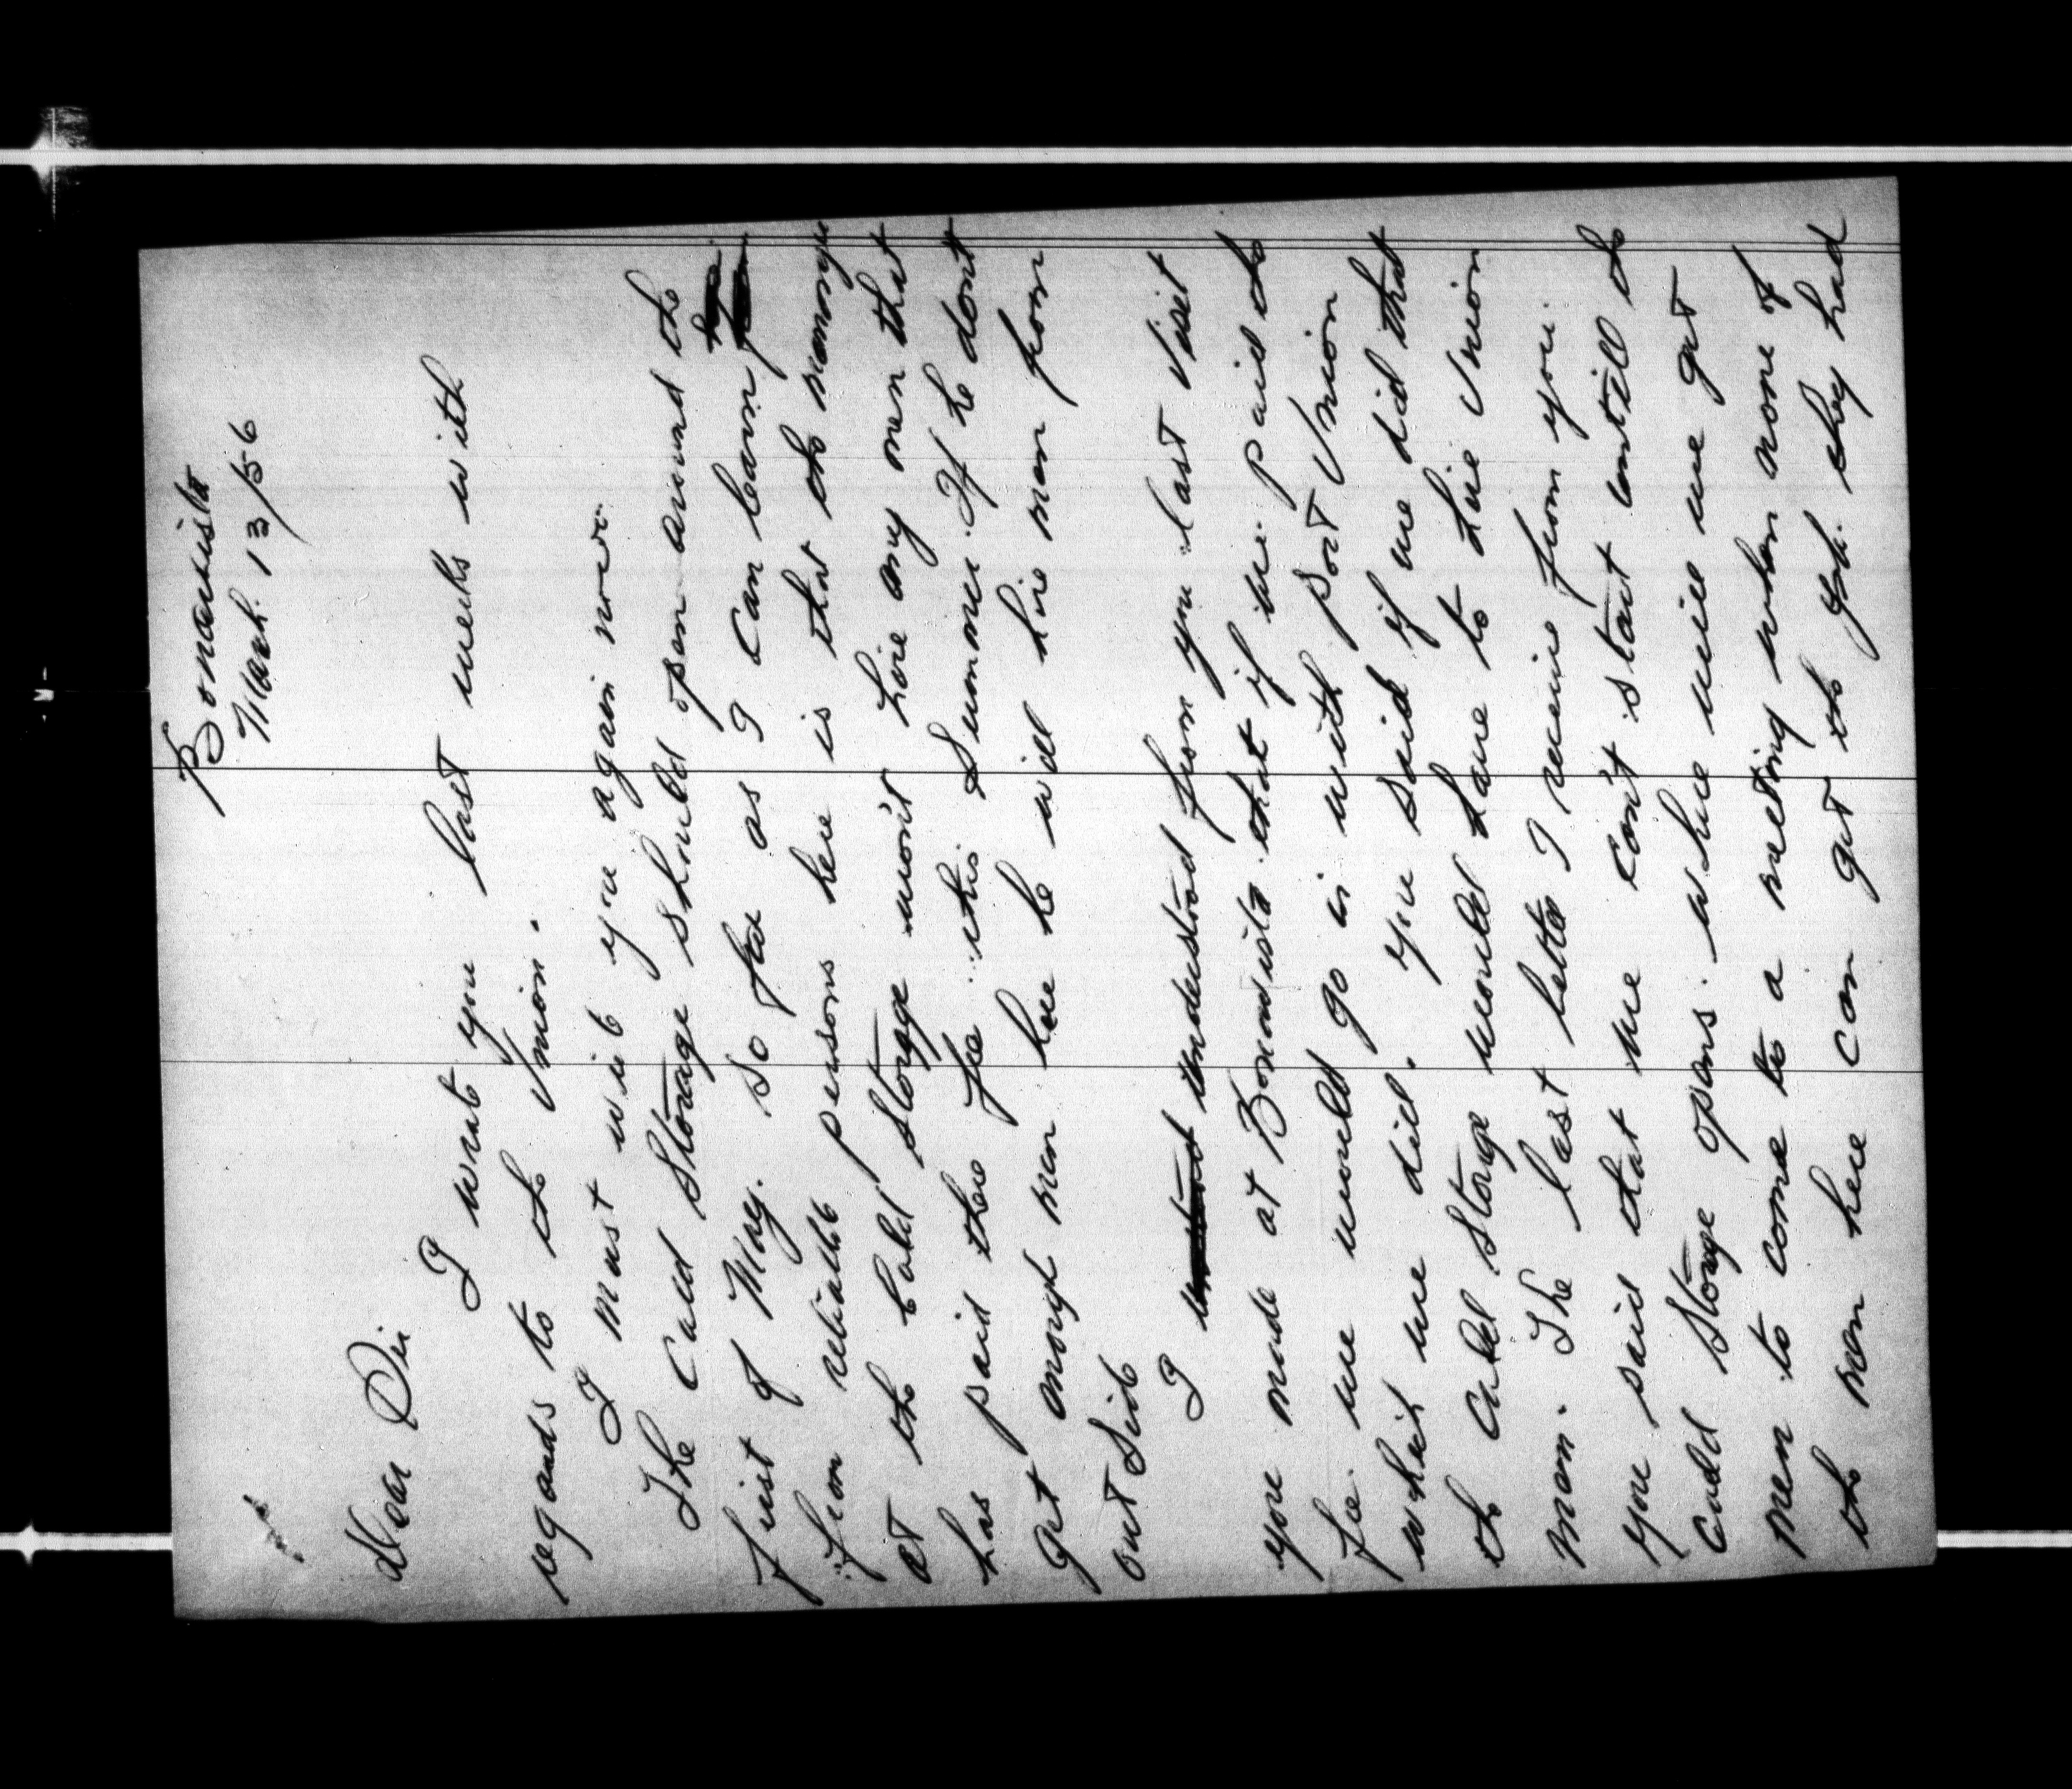 Bonavista
Mach. 13/56
Dear Sir
I wrote you last weeks with
regards to the Union.
I must write you again now.
The Cauld Storage should open around the
first of May. So far as I can learn
from reliable persons here is that the manager
at the Cauld Storage won't hire any men that
has paid there fee this Summer. If he dont
get enough men here he will hire men from
out Side
I understood from you last visit
you made at Bonavista that if we paid the
fee we would go in with port Union
which we did. You said if we did that
the Cauld Storage would have to hire Union
men. The last letter I receive from you
you said that we can't start untill the
Cauld Storage opens. Where will we get
men to come to a meeting when none of
the men here can get to fish. they had